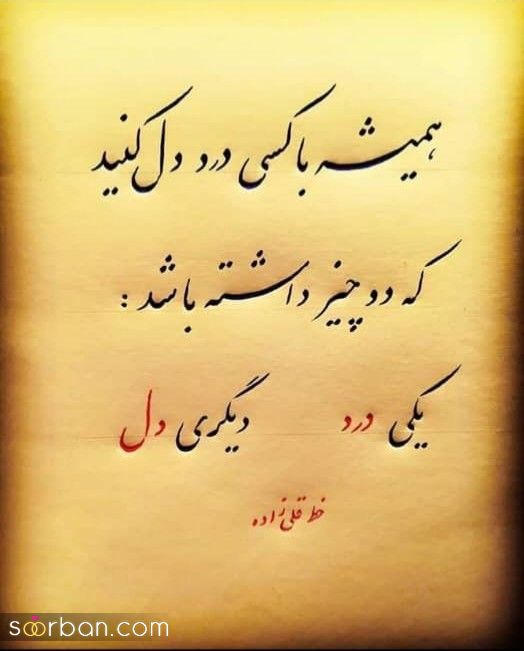 همیشه با کسی درد دل کنید
که دو چیز داشته باشد :
یکی درد دیگری دل
خط قلی زاده
soorban.com